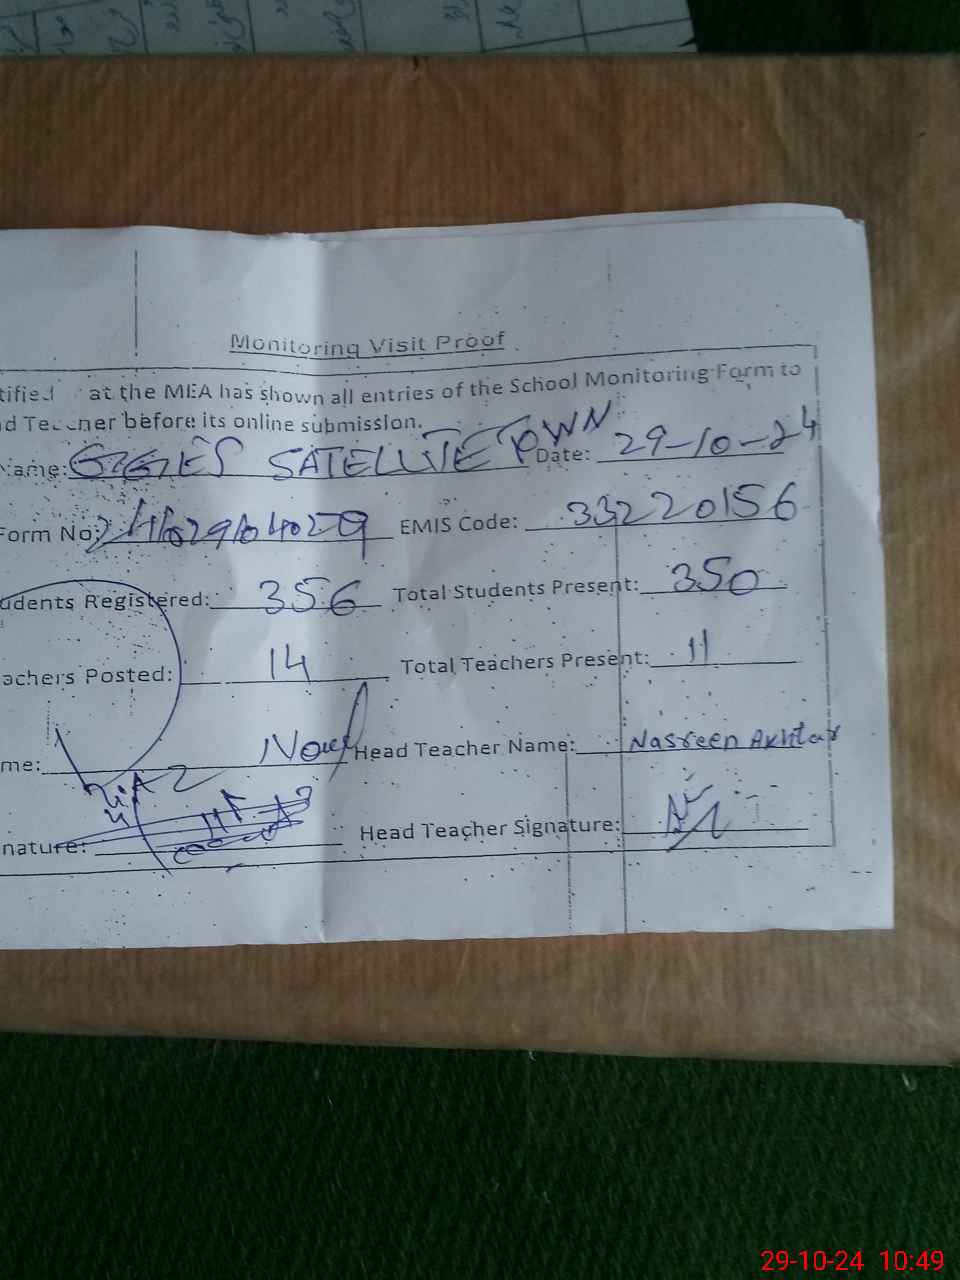 Monitoring Visit Proof
tified at the MEA has shown all entries of the School Monitoring Form to
d Teacher before its online submission.
Name: GGES SATELLITE TOWN Date: 29-10-24
Form No: EMIS Code: 33220156
udents Registered: 356 Total Students Present: 350
achers Posted: 14 Total Teachers Present: 11
me: Head Teacher Name: Nasreen Akhtar
nature: Head Teacher Signature:
29-10-24 10:49